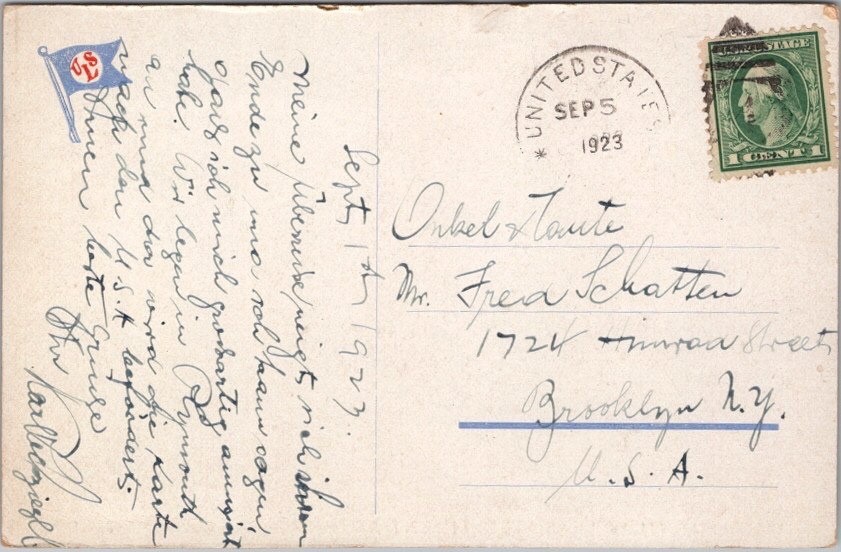 USL
Sept 1st, 1923.
Meine Überreise neigt sich ihrem
Ende zu und ich kann sagen
dass ich mich grossartig amüsiert
habe. Wir legen in Plymouth
an und da wird die Karte
nach den U.S.A befördert.
Ihnen beste Grüsse
Ihr
Karl
UNITED STATES
SEP 5
1923
U.S. POSTAGE
1 CENT 1
Onkel & Tante
Mr. Fred Schatten
1724 Himrod Street
Brooklyn N.Y.
U.S.A.